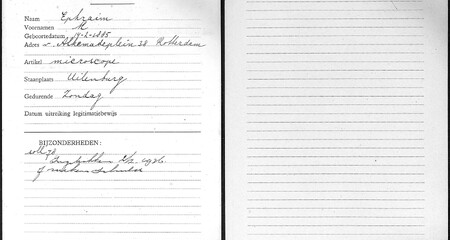 Naam Ephraim
Voornamen M
Geboortedatum 14-2-1885
Adres Alkemadeplein 38 Rotterdam
Artikel microscope
Staanplaats Uilenburg
Gedurende Zondag
Datum uitreiking legitimatiebewijs
BIJZONDERHEDEN:
1926.